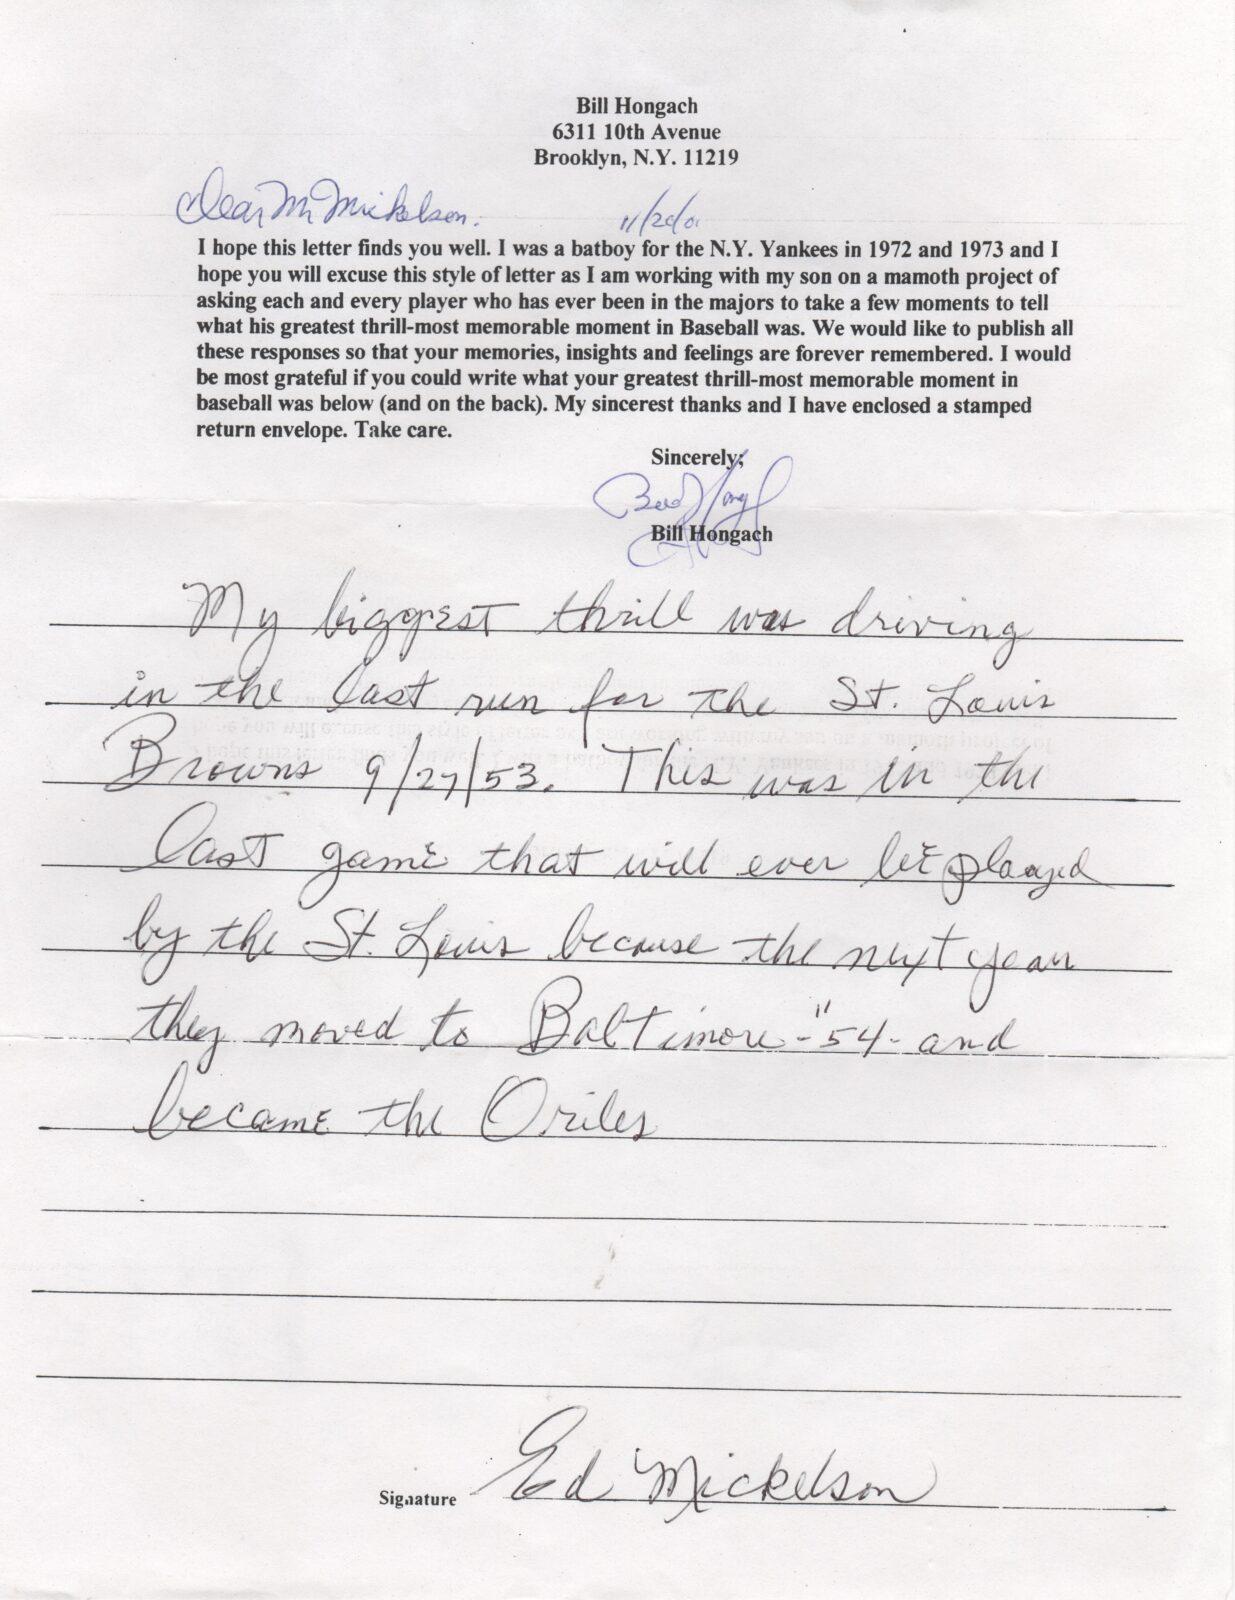 Bill Hongach
6311 10th Avenue
Brooklyn, N.Y. 11219
Dear Mr Mickelson. 11/20/0
I hope this letter finds you well. I was a batboy for the N.Y. Yankees in 1972 and 1973 and I
hope you will excuse this style of letter as I am working with my son on a mamoth project of
asking each and every player who has ever been in the majors to take a few moments to tell
what his greatest thrill-most memorable moment in Baseball was. We would like to publish all
these responses so that your memories, insights and feelings are forever remembered. I would
be most grateful if you could write what your greatest thrill-most memorable moment in
baseball was below (and on the back). My sincerest thanks and I have enclosed a stamped
return envelope. Take care.
Sincerely;
Bill Hongach
My biggest thrill was driving
in the last run for the St. Louis
Browns 9/27/53. This was in the
last game that will ever be played
by the St. Louis because the next year
they moved to Baltimore - "54 - and
became the Oriles
Signature Ed Mickelson